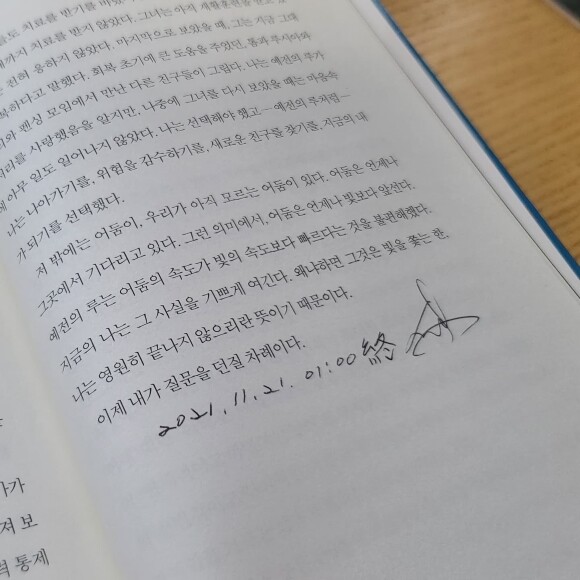 치료를 받기를
까지 치료를 받지 않았다. 그녀는 아직 재활훈련을 받고 있
전혀 응하지 않았다. 마지막으로 보았을 때, 그는 지금 그대
복하다고 말했다. 회복 초기에 큰 도움을 주었던, 톰과 루시아와
의 펜싱 모임에서 만난 다른 친구들이 그립다. 나는 예전의 루가
리를 사랑했음을 알지만, 나중에 그녀를 다시 보았을 때는 마음속
에 아무 일도 일어나지 않았다. 나는 선택해야 했고—예전의 루처럼—
나는 나아가기를, 위험을 감수하기를, 새로운 친구를 찾기를, 지금의 내
가 되기를 선택했다.
저 밖에는 어둠이, 우리가 아직 모르는 어둠이 있다. 어둠은 언제나
그곳에서 기다리고 있다. 그런 의미에서, 어둠은 언제나 빛보다 앞선다.
예전의 루는 어둠의 속도가 빛의 속도보다 빠르다는 것을 불편해했다.
지금의 나는 그 사실을 기쁘게 여긴다. 왜냐하면 그것은 빛을 쫓는 한,
나는 영원히 끝나지 않으리란 뜻이기 때문이다.
이제 내가 질문을 던질 차례이다.
2021.11.21. 01:00 終
가가
져 보
력 통제